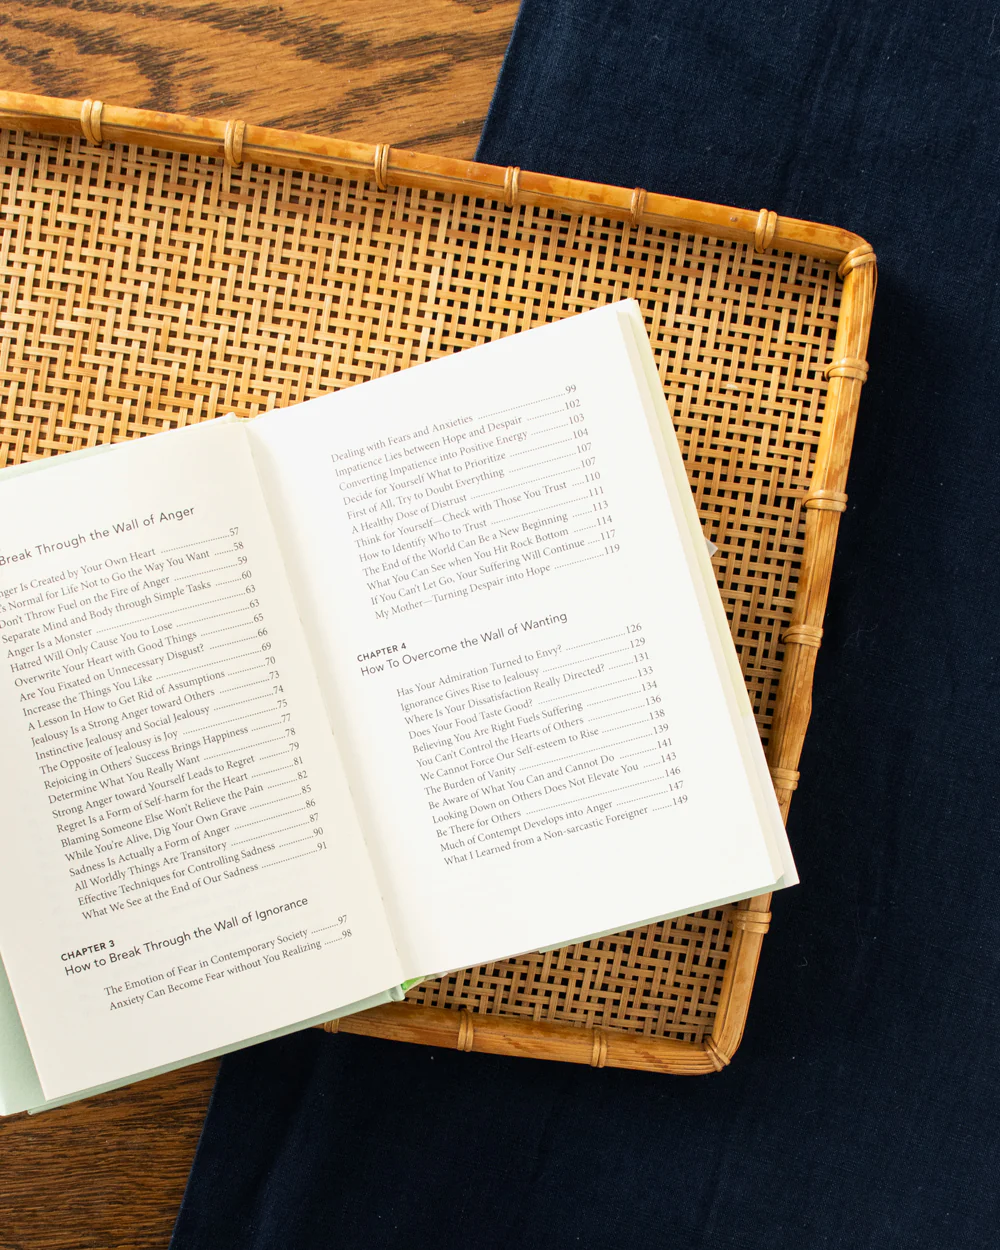 Break Through the Wall of Anger
nger Is Created by Your Own Heart ..... 57
's Normal for Life Not to Go the Way You Want ..... 58
Don't Throw Fuel on the Fire of Anger ..... 59
Separate Mind and Body through Simple Tasks ..... 60
Anger Is a Monster ..... 63
Hatred Will Only Cause You to Lose ..... 63
Overwrite Your Heart with Good Things ..... 65
Are You Fixated on Unnecessary Disgust? ..... 66
Increase the Things You Like ..... 69
A Lesson In How to Get Rid of Assumptions ..... 70
Jealousy Is a Strong Anger toward Others ..... 73
Instinctive Jealousy and Social Jealousy ..... 74
The Opposite of Jealousy is Joy ..... 75
Rejoicing in Others' Success Brings Happiness ..... 77
Determine What You Really Want ..... 78
Strong Anger toward Yourself Leads to Regret ..... 79
Regret Is a Form of Self-harm for the Heart ..... 81
Blaming Someone Else Won't Relieve the Pain ..... 82
While You're Alive, Dig Your Own Grave ..... 85
Sadness Is Actually a Form of Anger ..... 86
All Worldly Things Are Transitory ..... 87
Effective Techniques for Controlling Sadness ..... 90
What We See at the End of Our Sadness ..... 91
CHAPTER 3
How to Break Through the Wall of Ignorance
The Emotion of Fear in Contemporary Society ..... 97
Anxiety Can Become Fear without You Realizing ..... 98
Dealing with Fears and Anxieties ..... 99
Impatience Lies between Hope and Despair ..... 102
Converting Impatience into Positive Energy ..... 103
Decide for Yourself What to Prioritize ..... 104
First of All, Try to Doubt Everything ..... 107
A Healthy Dose of Distrust ..... 107
Think for Yourself—Check with Those You Trust ..... 110
How to Identify Who to Trust ..... 111
The End of the World Can Be a New Beginning ..... 113
What You Can See when You Hit Rock Bottom ..... 114
If You Can't Let Go, Your Suffering Will Continue ..... 117
My Mother—Turning Despair into Hope ..... 119
CHAPTER 4
How To Overcome the Wall of Wanting
Has Your Admiration Turned to Envy? ..... 126
Ignorance Gives Rise to Jealousy ..... 129
Where Is Your Dissatisfaction Really Directed? ..... 131
Does Your Food Taste Good? ..... 133
Believing You Are Right Fuels Suffering ..... 134
You Can't Control the Hearts of Others ..... 136
We Cannot Force Our Self-esteem to Rise ..... 138
The Burden of Vanity ..... 139
Be Aware of What You Can and Cannot Do ..... 141
Looking Down on Others Does Not Elevate You ..... 143
Be There for Others ..... 146
Much of Contempt Develops into Anger ..... 147
What I Learned from a Non-sarcastic Foreigner ..... 149